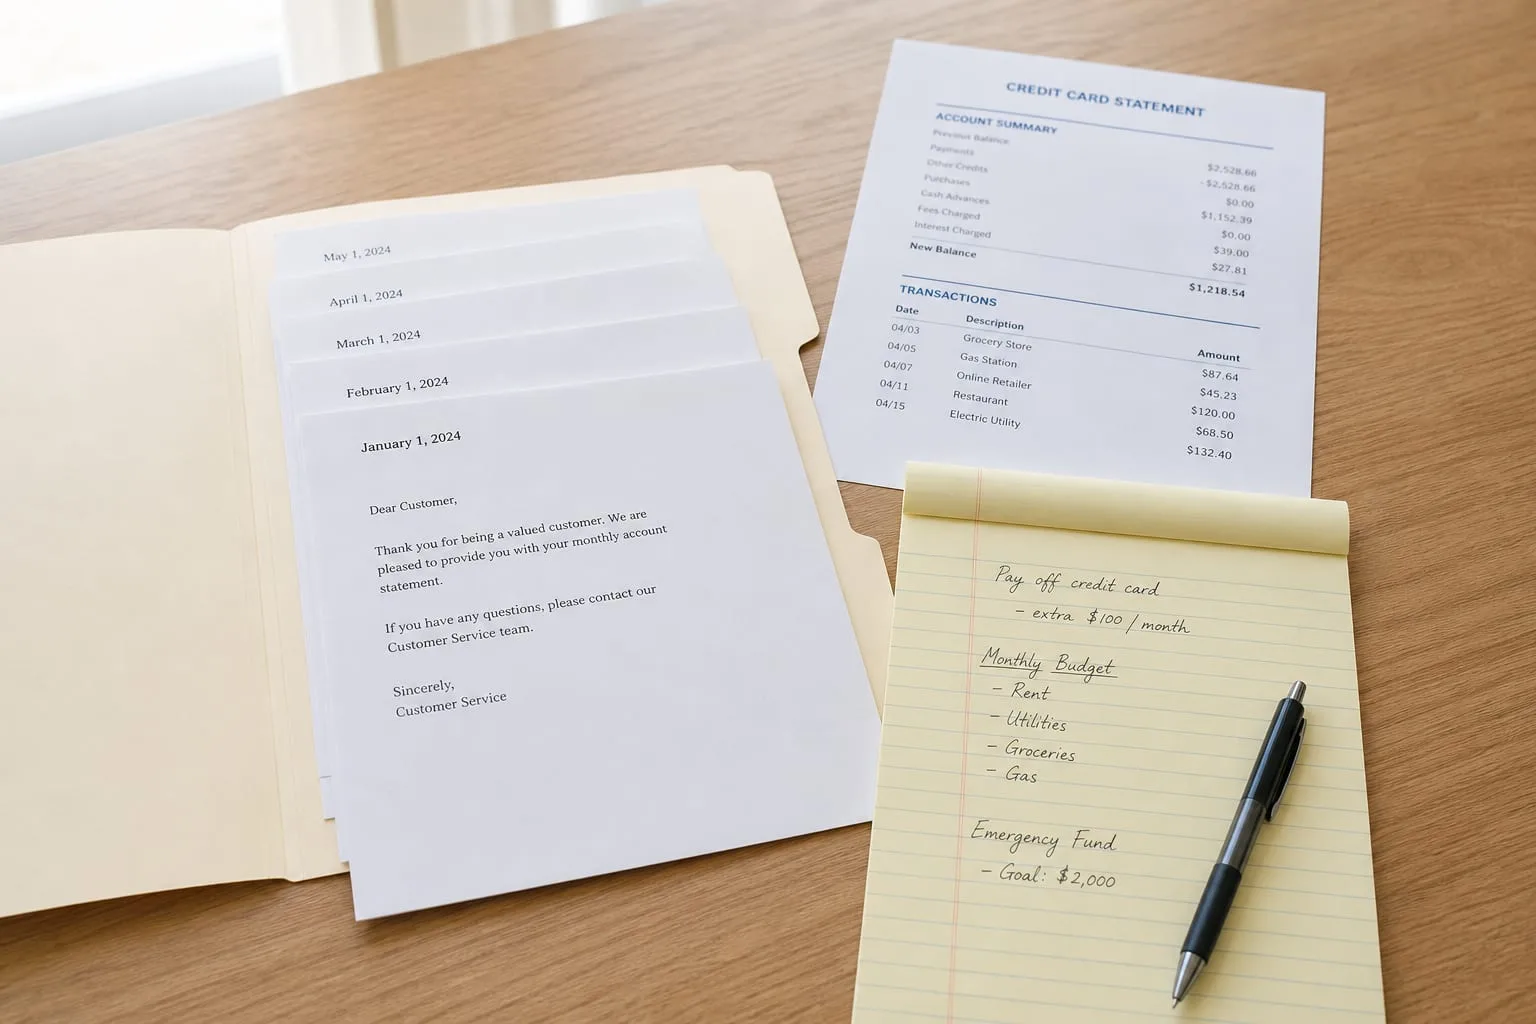 May 1, 2024
April 1, 2024
March 1, 2024
February 1, 2024
January 1, 2024
Dear Customer,
Thank you for being a valued customer. We are
pleased to provide you with your monthly account
statement.
If you have any questions, please contact our
Customer Service team.
Sincerely,
Customer Service
CREDIT CARD STATEMENT
ACCOUNT SUMMARY
Previous Balance $2,528.66
Payments - $2,528.66
Other Credits $0.00
Purchases $1,152.39
Cash Advances $0.00
Fees Charged $39.00
Interest Charged $27.81
New Balance $1,218.54
TRANSACTIONS
Date Description Amount
04/03 Grocery Store $87.64
04/05 Gas Station $45.23
04/07 Online Retailer $120.00
04/11 Restaurant $68.50
04/15 Electric Utility $132.40
Pay off credit card
- extra $100 / month
Monthly Budget
- Rent
- Utilities
- Groceries
- Gas
Emergency Fund
- Goal: $2,000